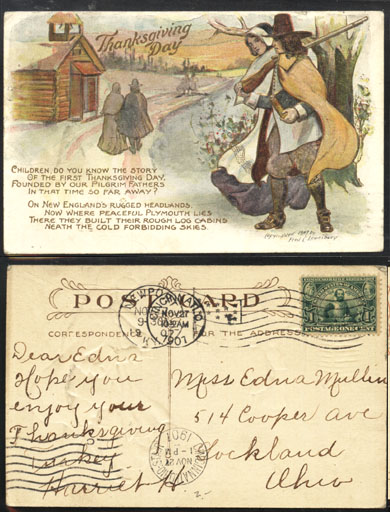 Thanksgiving
Day
CHILDREN, DO YOU KNOW THE STORY
OF THE FIRST THANKSGIVING DAY,
FOUNDED BY OUR PILGRIM FATHERS
IN THAT TIME SO FAR AWAY?
ON NEW ENGLAND'S RUGGED HEADLANDS,
NOW WHERE PEACEFUL PLYMOUTH LIES
THERE THEY BUILT THEIR ROUGH LOG CABINS
NEATH THE COLD FORBIDDING SKIES.
POST CARD
CORRESPONDENCE
FOR THE ADDRESS
NOV 27
1907
POSTAGE ONE CENT
Dear Edna
Hope you
enjoy your
Thanksgiving
turkey.
Harriet H.
Miss Edna Mullen
514 Cooper ave
Lockland
Ohio
NOV 27
2